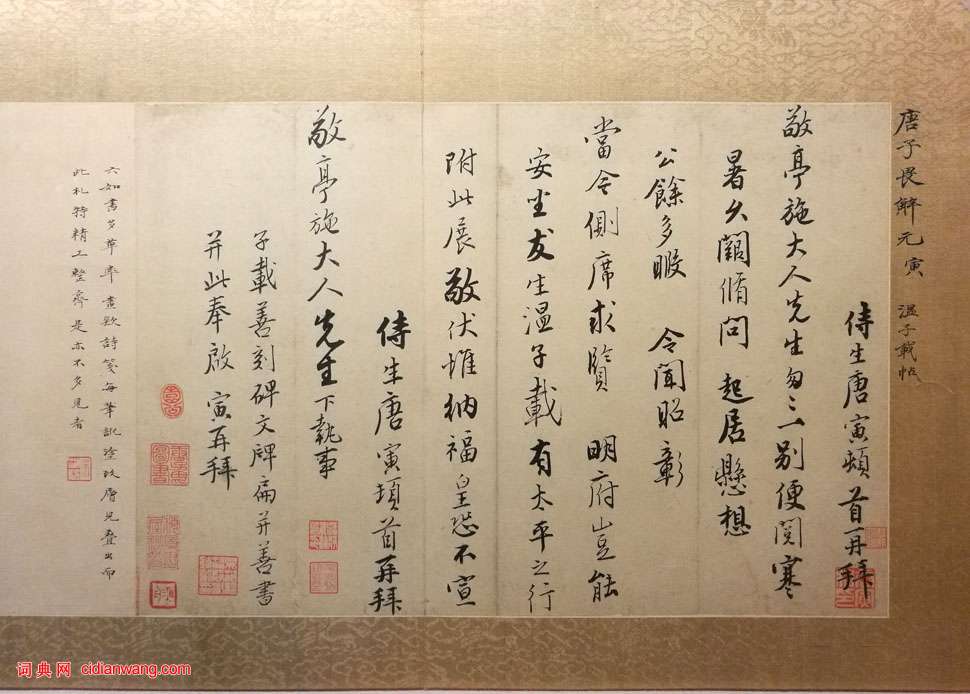 唐子畏解元寅 溫子載帖
侍生唐寅頓首再拜
敬亭施大人先生勿々一別便閱寒
暑久闊脩問 起居懸想
公餘多暇 令聞昭彰
當今側席求賢 明府豈能
安坐友生溫子載有太平之行
附此展敬伏惟納福皇恐不宣
侍生唐寅頓首再拜
敬亭施大人先生下執事
子載善刻碑文牌扁并善書
并此奉啟 寅再拜
六如書多草率畫款詩箋每筆訛塗改層見疊出而
此札特精工整齊是亦不多見者
词典网 cidianwang.com